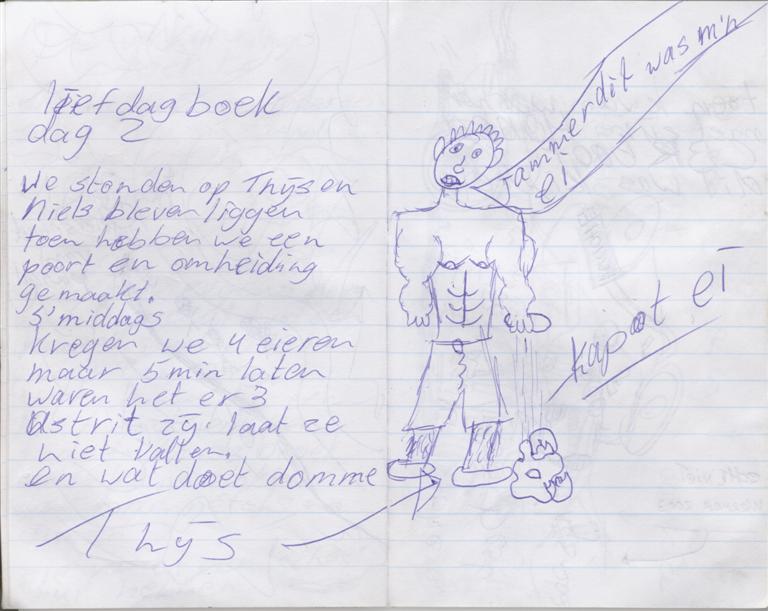 liefdagboek
dag 2
We stonden op Thijs en
Niels bleven liggen
toen hebben we een
poort en omheiding
gemaakt.
S'middags
kregen we 4 eieren
maar 5 min laten
waren het er 3
Astrit zij laat ze
niet vallen.
en wat doet domme
Thijs
jammer dit was m'n
ei
kapot ei